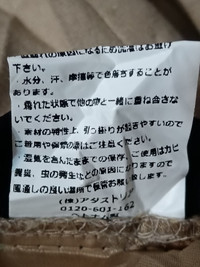 下さい。
・水分、汗、摩擦等で色落ちすることが
あります。
・濡れた状態で他の物と一緒に重ね合さな
いでください。
・素材の特性上、引っ掛りが起きやすいので
ご着用や保管の際はご注意ください。
・湿気を含んだままでの保存、ご使用はカビ
異臭、虫の発生などの原因になりますので
風通しの良い場所で保管お願い致します。
(株)アダストリア
0120-601-162